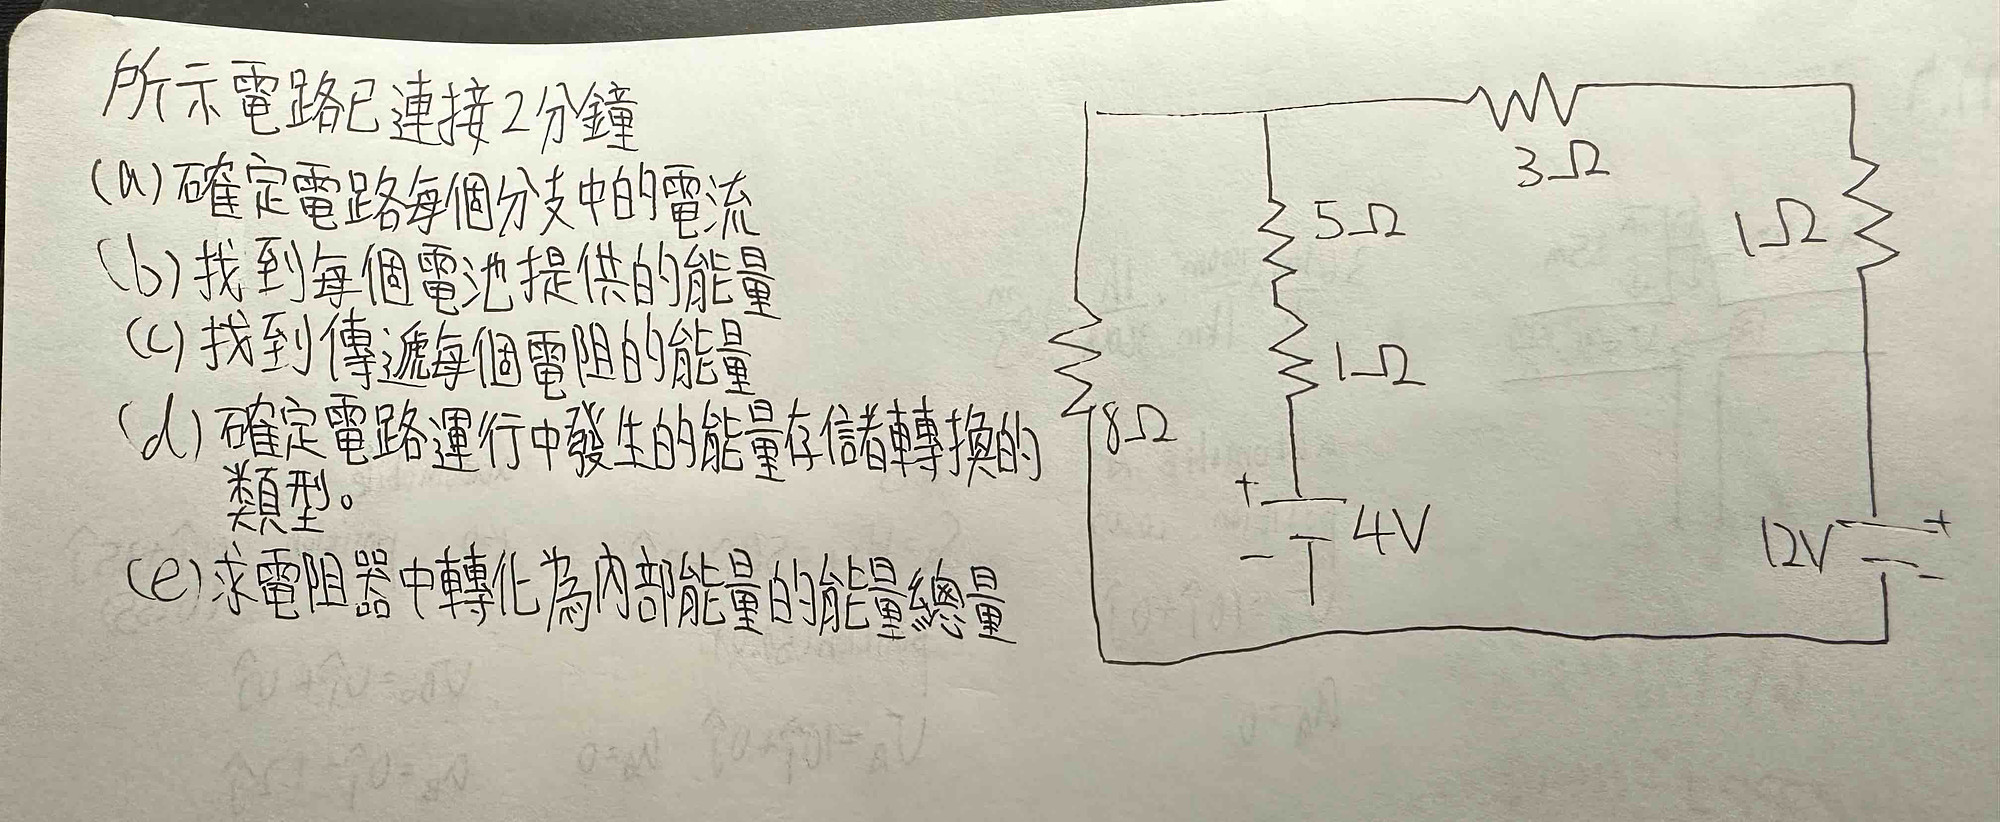 所示電路已連接2分鐘
(a)確定電路每個分支中的電流
(b)找到每個電池提供的能量
(c)找到傳遞每個電阻的能量
(d)確定電路運行中發生的能量存儲轉換的
類型。
(e)求電阻器中轉化為內部能量的能量總量
3Ω
5Ω
1Ω
1Ω
8Ω
+
4V
-
12V
+
-